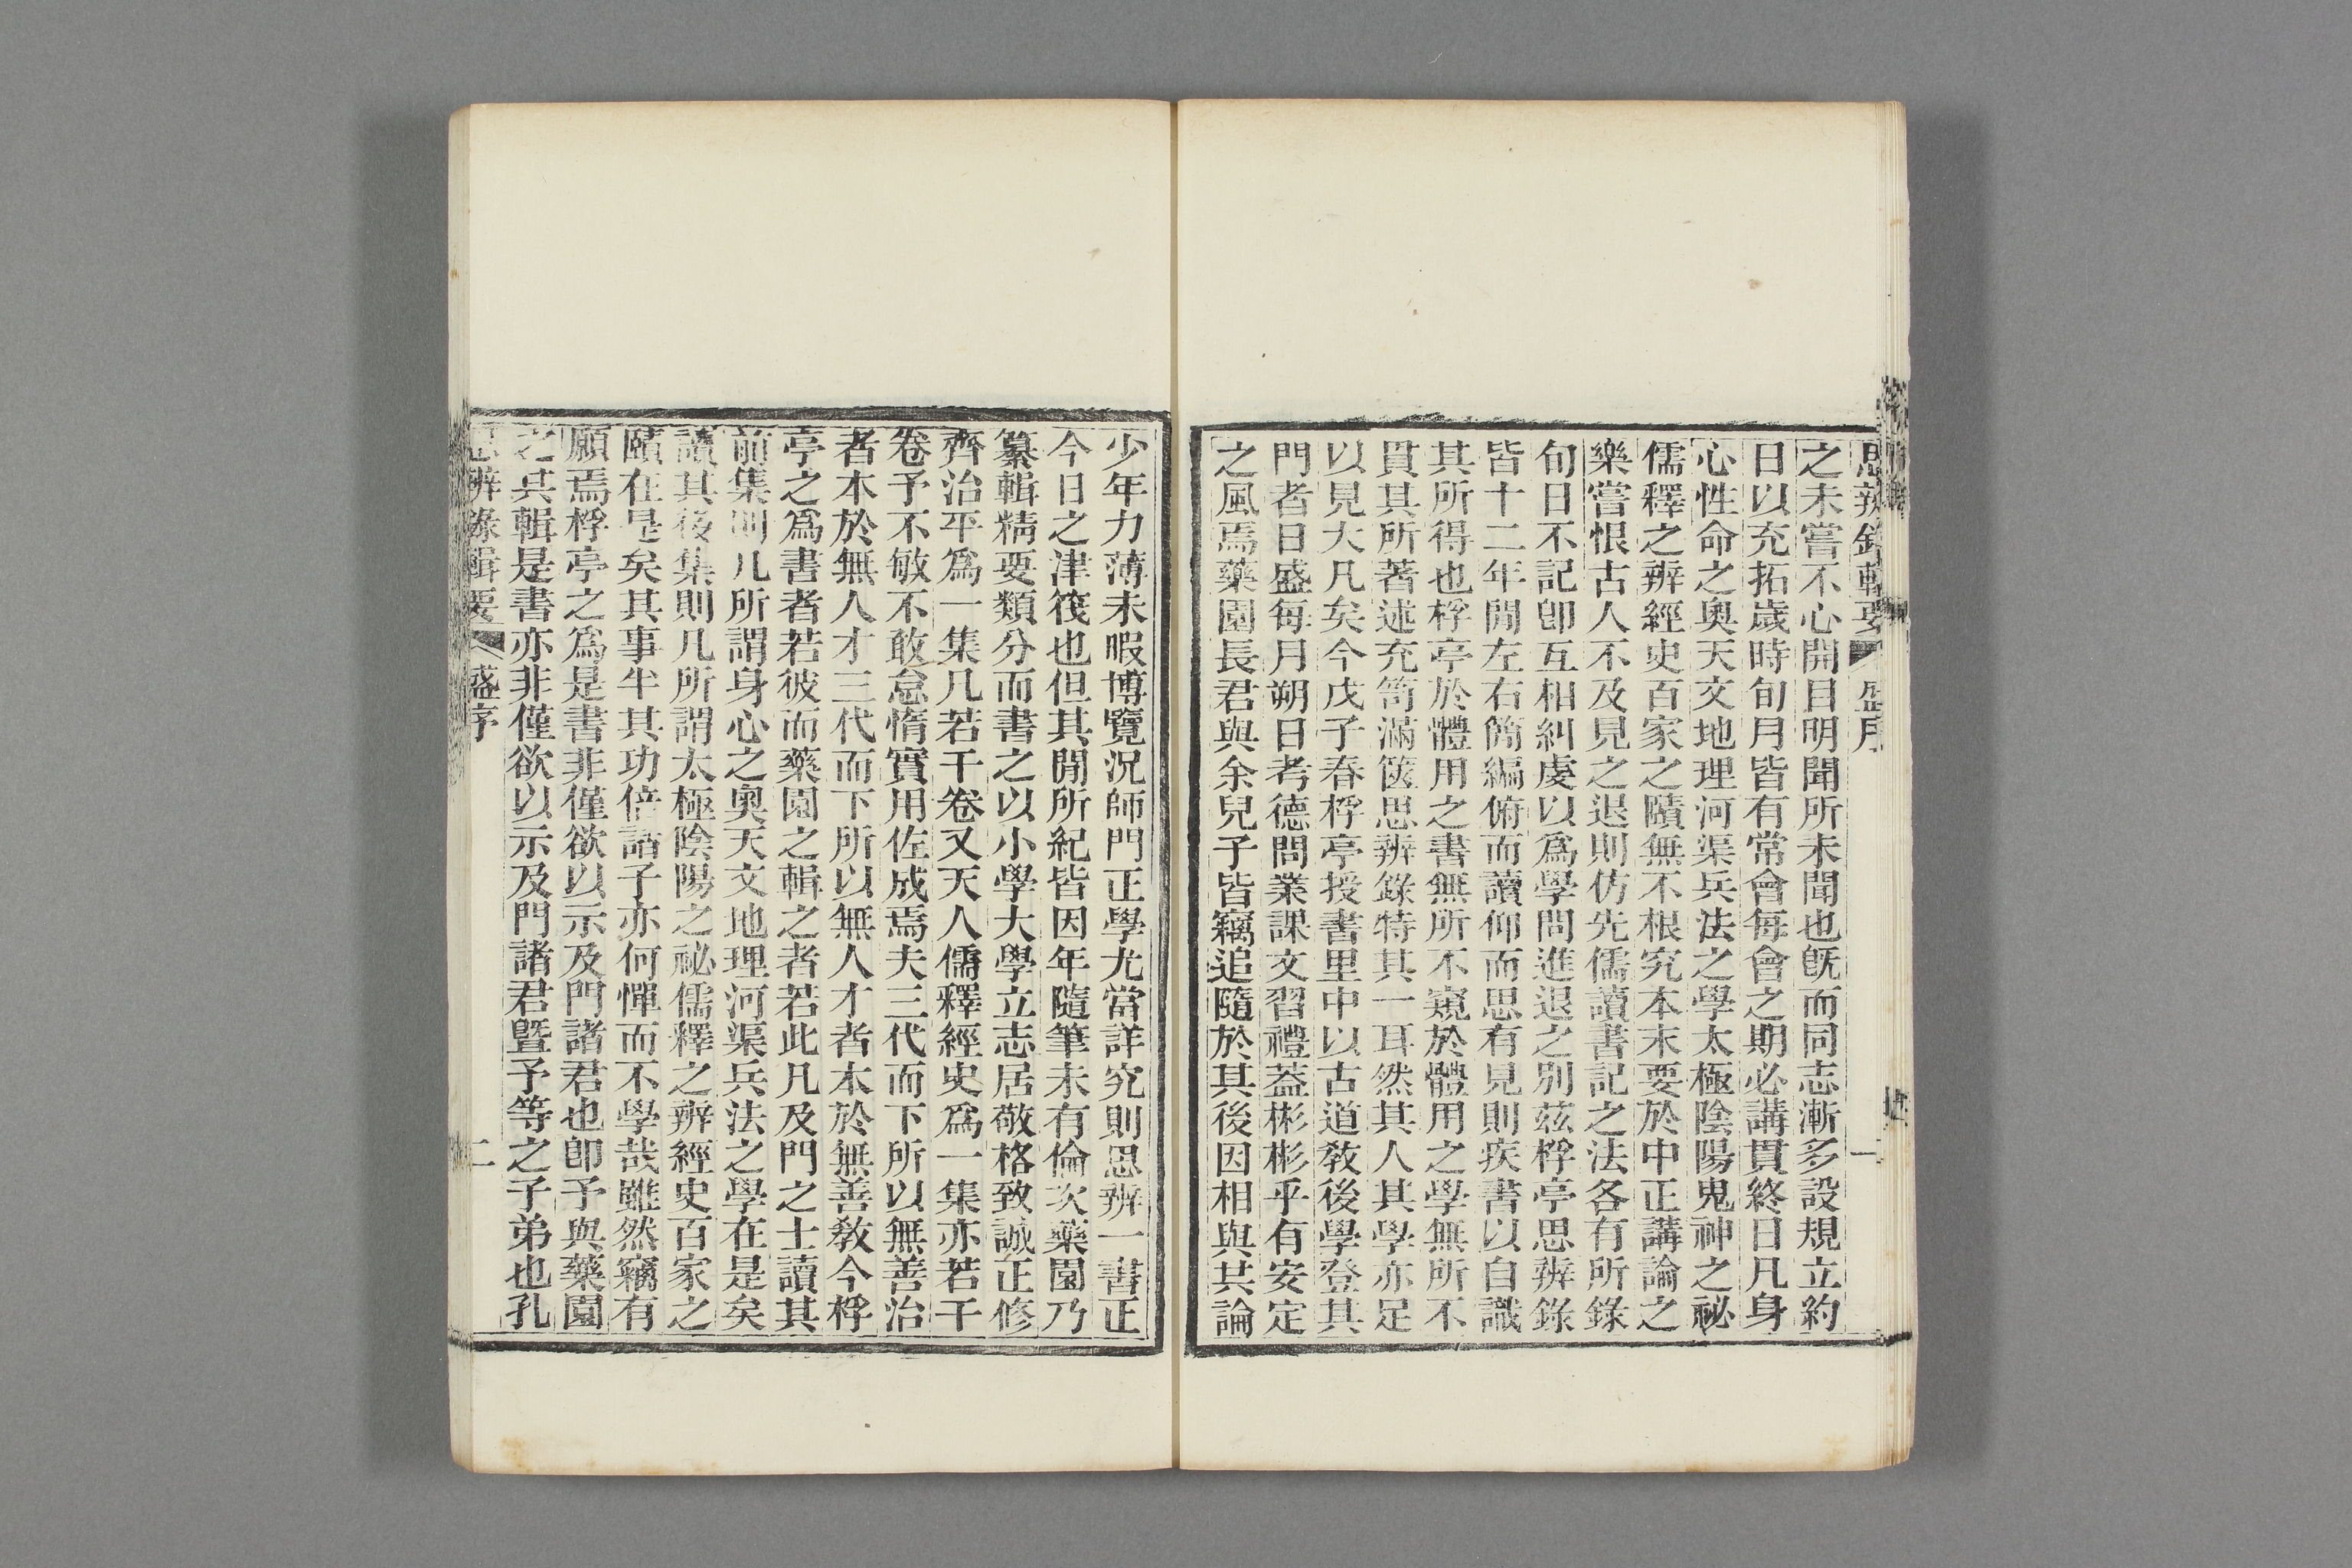 思辨錄輯要 盛序 一
之未嘗不心開目明聞所未聞也旣而同志漸多設規立約
日以充拓歲時旬月皆有常會每會之期必講貫終日凡身
心性命之奧天文地理河渠兵法之學太極陰陽鬼神之祕
儒釋之辨經史百家之賾無不根究本末要於中正講論之
樂嘗恨古人不及見之退則仿先儒讀書記之法各有所錄
旬日不記卽互相糾虔以爲學問進退之別茲桴亭思辨錄
皆十二年閒左右簡編俯而讀仰而思有見則疾書以自識
其所得也桴亭於體用之書無所不窺於體用之學無所不
貫其所著述充笥滿篋思辨錄特其一耳然其人其學亦足
以見大凡矣今戊子春桴亭授書里中以古道敎後學登其
門者日盛每月朔日考德問業課文習禮葢彬彬乎有安定
之風焉藥園長君與余兒子皆竊追隨於其後因相與共論
少年力薄未暇博覽況師門正學尤當詳究則思辨一書正
今日之津筏也但其閒所紀皆因年隨筆未有倫次藥園乃
纂輯精要類分而書之以小學大學立志居敬格致誠正修
齊治平爲一集凡若干卷又天人儒釋經史爲一集亦若干
卷予不敏不敢怠惰實用佐成焉夫三代而下所以無善治
者本於無人才三代而下所以無人才者本於無善敎今桴
亭之爲書者若彼而藥園之輯之者若此凡及門之士讀其
前集則凡所謂身心之奧天文地理河渠兵法之學在是矣
讀其後集則凡所謂太極陰陽之祕儒釋之辨經史百家之
賾在是矣其事半其功倍諸子亦何憚而不學哉雖然竊有
願焉桴亭之爲是書非僅欲以示及門諸君也卽予與藥園
之共輯是書亦非僅欲以示及門諸君暨予等之子弟也孔
思辨錄輯要 盛序 二